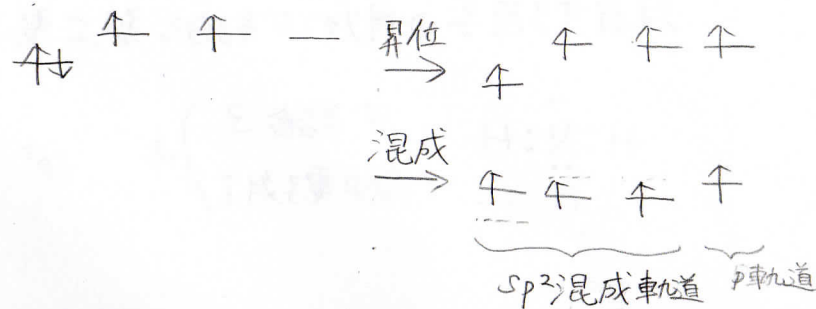 昇位
混成
sp²混成軌道 p軌道